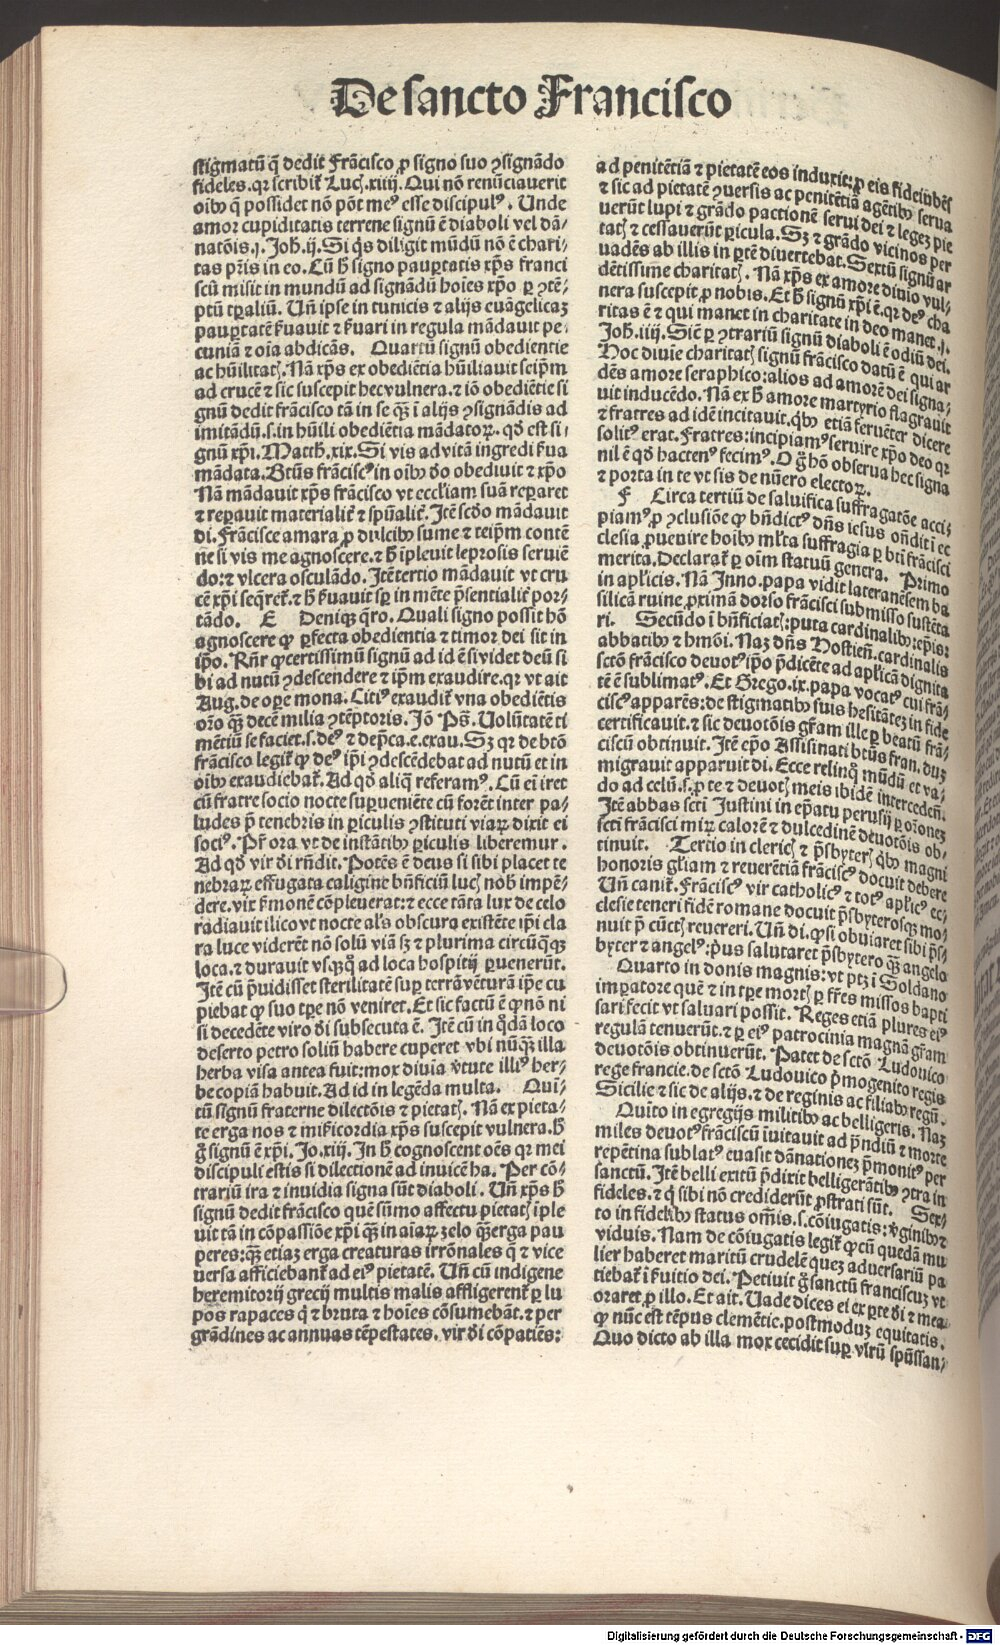 De sancto Francisco
stigmatū q̄ dedit Frācisco ꝓ signo suo ꝯsignādo
fideles. qr scribit̃ Luc. xiiij. Qui nō renūciauerit
oib9 q̄ possidet nō pōt meꝰ esse discipulꝰ. Unde
amor cupiditatis terrene signū ē diaboli vel dā-
natōis. j. Joh. ij. Si q̇s diligit mūdū nō ē chari-
tas pr̄is in eo. Cū h̄ signo pauꝑtatis xp̄s franci
scū misit in mundū ad signādū hoīes xp̄o ꝑ ꝯtē-
ptū tꝑaliū. Un̄ ipse in tunicis ⁊ alijs euāgelicaꝫ
pauꝑtatē ẜuauit ⁊ ẜuari in regula mādauit pe-
cuniā ⁊ oīa abdicās. Quartū signū obedientie
ac hūilitatꝭ. Nā xp̄s ex obediētia hūiliauit seip̄m
ad crucē ⁊ sic suscepit hec vulnera. ⁊ iō obediētie si
gnū dedit frācisco tā in se qꝫ̄ ī alijs ꝯsignādis ad
imitādū. s. in hūili obediētia mādatoꝝ. qd̄ est si-
gnū xp̄i. Matth. xix. Si vis ad vitā ingredi ẜua
mādata. Btūs frāciscꝰ in oīb9 deo obediuit ⁊ xp̄o
Nā mādauit xp̄s frācisco vt eccl̄iam suā reꝑaret
⁊ reꝑauit materialit̃ ⁊ sp̄ualit̃. Itē sc̄do mādauit
di. Frācisce amara ꝓ dulcib9 sume ⁊ teip̄m contē
ne si vis me agnoscere. ⁊ h̄ īpleuit leprosis seruiē
do: ⁊ vlcera osculādo. Itē tertio mādauit vt cru
cē xp̄i seq̄ret̃. ⁊ h̄ ẜuauit sꝑ in mēte p̄sentialit̃ por-
tādo. E Deniqꝫ q̄ro. Quali signo possit hō
agnoscere ꝙ ꝑfecta obedientia ⁊ timor dei sit in
ip̄o. Rn̄r ꝙ certissimū signū ad id ē si videt deū si
bi ad nutū ꝯdescendere ⁊ ip̄m exaudire. qr vt ait
Aug. de oꝑe mona. Citiꝰ exaudit̃ vna obediētis
or̄o qꝫ̄ decē milia ꝯtēptoris. Jō Ps̄. Uolūtatē ti
mētiū se faciet. s. deꝰ ⁊ dep̄ca. e. exau. Sꝫ qr de btō
frācisco legit̃ ꝙ deꝰ ip̄i ꝯdescēdebat ad nutū et in
oīb9 exaudiebat̃. Ad qd̄ aliq̄ referamꝰ. Cū eī iret
cū fratre socio nocte suꝑueniēte cū forēt inter pa-
ludes p̄ tenebris in ꝑiculis ꝯstituti viaꝝ dixit ei
sociꝰ. Pr̄ ora vt de instātib9 ꝑiculis liberemur.
Ad qd̄ vir d̄i rn̄dit. Potēs ē deus si sibi placet te
nebraꝝ effugata caligine bn̄ficiū lucꝭ nob̄ impē-
dere. vix ẜmonē cōpleuerat: ⁊ ecce tāta lux de celo
radiauit ilico vt nocte al̄s obscura existēte ip̄i cla
ra luce viderēt nō solū viā sꝫ ⁊ plurima circūq̇qꝫ
loca. ⁊ durauit vsqꝫ q̇ ad loca hospitij ꝑuenerūt.
Itē cū p̄uidisset sterilitatē suꝑ terrā vēturā ip̄e cu
piebat ꝙ suo tꝑe nō veniret. Et sic factū ē ꝙ nō ni
si decedēte viro d̄i subsecuta ē. Itē cū in q̇dā loco
deserto petro soliū habere cuperet vbi nūqꝫ̄ illa
herba visa antea fuit: mox diuīa v̄tute illiꝰ her-
be copiā habuit. Ad id in legēda multa. Qui-
tū signū fraterne dilectōis ⁊ pietatꝭ. Nā ex pieta-
te erga nos ⁊ mīẜicordia xp̄s suscepit vulnera. h̄
g̊ signū ē xp̄i. Jo. xiij. In h̄ cognoscent oēs qr mei
discipuli estis si dilectionē ad inuicē ha. Per cō-
trariū ira ⁊ inuidia signa sūt diaboli. Un̄ xp̄s h̄
signū dedit frācisco quē sūmo affectu pietatꝭ īple
uit tā in cōpassiōe xp̄i qꝫ̄ in aīaꝝ zelo qꝫ̄ erga pau
peres: qꝫ̄ etiaꝫ erga creaturas irrōnales q̄ ⁊ vice
versa afficiebant̃ ad eiꝰ pietatē. Un̄ cū indigene
heremitorij grecij multis malis affligerent̃ ꝑ lu
pos rapaces q̇ ⁊ bruta ⁊ hoīes cōsumebāt. ⁊ per
grādines ac annuas tēpestates. vir d̄i cōpatiēs:
ad penitētiā ⁊ pietatē eos induxit: ꝓ eis fideiubēs
⁊ sic ad pietatē ꝯuersis ac penitētiā agētib9 serua
uerūt lupi ⁊ grādo pactionē serui dei ⁊ legeꝫ pie
tatꝭ ⁊ cessauerūt ꝑicula. Sꝫ ⁊ grādo vicinos per
uadēs ab illis in ꝑtē diuertebat. Sextū signū ar
dētissime charitatꝭ. Nā xp̄s ex amore diuīo vul-
nera suscepit ꝓ nobis. Et h̄ signū xp̄i ē. qr deꝰ cha
ritas ē ⁊ qui manet in charitate in deo manet. j.
Joh. iiij. Sic̄ ꝑ ꝯtrariū signū diaboli ē odiū dei.
Hoc diuīe charitatꝭ signū frācisco datū ē qui ar
dēs amore seraphico: alios ad amorē dei signa-
uit inducēdo. Nā ex h̄ amore martyrio flagrauit
⁊ fratres ad idē incitauit. q̇b9 etiā feruēter dicere
solitꝰ erat. Fratres: incipiamꝰ seruire xp̄o deo qr
nil ē qd̄ hactenꝰ fecimꝰ. O g̊ hō obserua hec signa
⁊ porta in te vt sis de nūero electoꝝ.
F Circa tertiū de saluifica suffragatōe acci-
piamꝰ ꝓ ꝯclusiōe ꝙ bn̄dictꝰ dn̄s iesus on̄dit ī ec
clesia ꝓuenire hoīb9 ml̄ta suffragia ꝑ bt̄i frācisci
merita. Declarat̃ ꝑ oīm statuū genera. Primo
in aplīcis. Nā Inno. papa vidit lateranēsem ba
silicā ruine ꝓximā dorso frācisci submisso sustēta
ri. Secūdo ī bn̄ficiatꝭ: puta cardinalib9: ep̄is:
abbatib9 ⁊ hmōi. Naꝫ dn̄s Hostien̄. cardinalis
sctō frācisco deuotꝰ ip̄o p̄dicēte ad aplīcā dignita
tē ē sublimatꝰ. Et Grego. ix. papa vocatꝰ cui frā-
ciscꝰ apparēs: de stigmatib9 suis hesitāteꝫ in fide
certificauit. ⁊ sic deuotōis gr̄am ille ꝑ beatū frā-
ciscū obtinuit. Itē ep̄o Assisinati btūs fran. duꝫ
migrauit apparuit di. Ecce relinq̄ mūdū et va-
do ad celū. s. ꝓ te ⁊ deuotꝭ meis ibidē intercedeñ.
Itē abbas scti Justini in ep̄atu perusij ꝑ or̄oneꝫ
scti frācisci miꝝ calorē ⁊ dulcedinē deuotōis ob-
tinuit. Tertio in clericꝭ ⁊ p̄sbyterꝭ q̇b9 magni
honoris gl̄iam ⁊ reuerētiā frāciscꝰ docuit debere
Un̄ canit̃. Frāciscꝰ vir catholicꝰ ⁊ totꝰ aplīcꝰ ec-
clesie teneri fidē romane docuit p̄sbyterosqꝫ mo-
nuit p̄ cūctꝭ reuereri. Un̄ di. ꝙ si obuiaret sibi p̄s-
byter ⁊ angelꝰ: pꝰus salutaret p̄sbytero qꝫ̄ angelo
Quarto in donis magnis: vt ptꝫ ī Soldano
imꝑatore quē ⁊ in tꝑe mortꝭ ꝑ fr̄es missos bapti
sari fecit vt saluari possit. Reges etiā plures eiꝰ
regulā tenuerūt. ⁊ ꝑ eiꝰ patrocinia magnā gr̄am
deuotōis obtinuerūt. Patet de sctō Ludouico
rege francie. de sctō Ludouico p̄mogenito regis
Sicilie ⁊ sic de alijs. ⁊ de reginis ac filiab9 regū.
Quīto in egregijs militib9 ac belligeris. Naꝫ
miles deuotꝰ frāciscū īuitauit ad p̄ndiū ⁊ morte
repētina sublatꝰ euasit dānationeꝫ p̄monitꝰ per
sanctū. Itē belli exitū p̄dixit belligerātib9 ꝯtra in
fideles. ⁊ q̇ sibi nō crediderūt ꝓstrati sūt. Sex-
to in fidelib9 status om̄is. s. cōiugatis: v̄ginib9 ⁊
viduis. Nam de cōiugatis legit̃ ꝙ cū quedā mu
lier haberet maritū crudelē queꝫ aduersariū pa
tiebat̃ ī ẜuitio dei. Petiuit g̊ sanctū franciscuꝫ vt
oraret ꝓ illo. Et ait. Uade dices ei ex ꝑte d̄i ⁊ mea
ꝙ nūc est tēpus clemētie. postmoduꝫ equitatis.
Quo dicto ab illa mox cecidit suꝑ virū sp̄ussan-
Digitalisierung gefördert durch die Deutsche Forschungsgemeinschaft - DFG